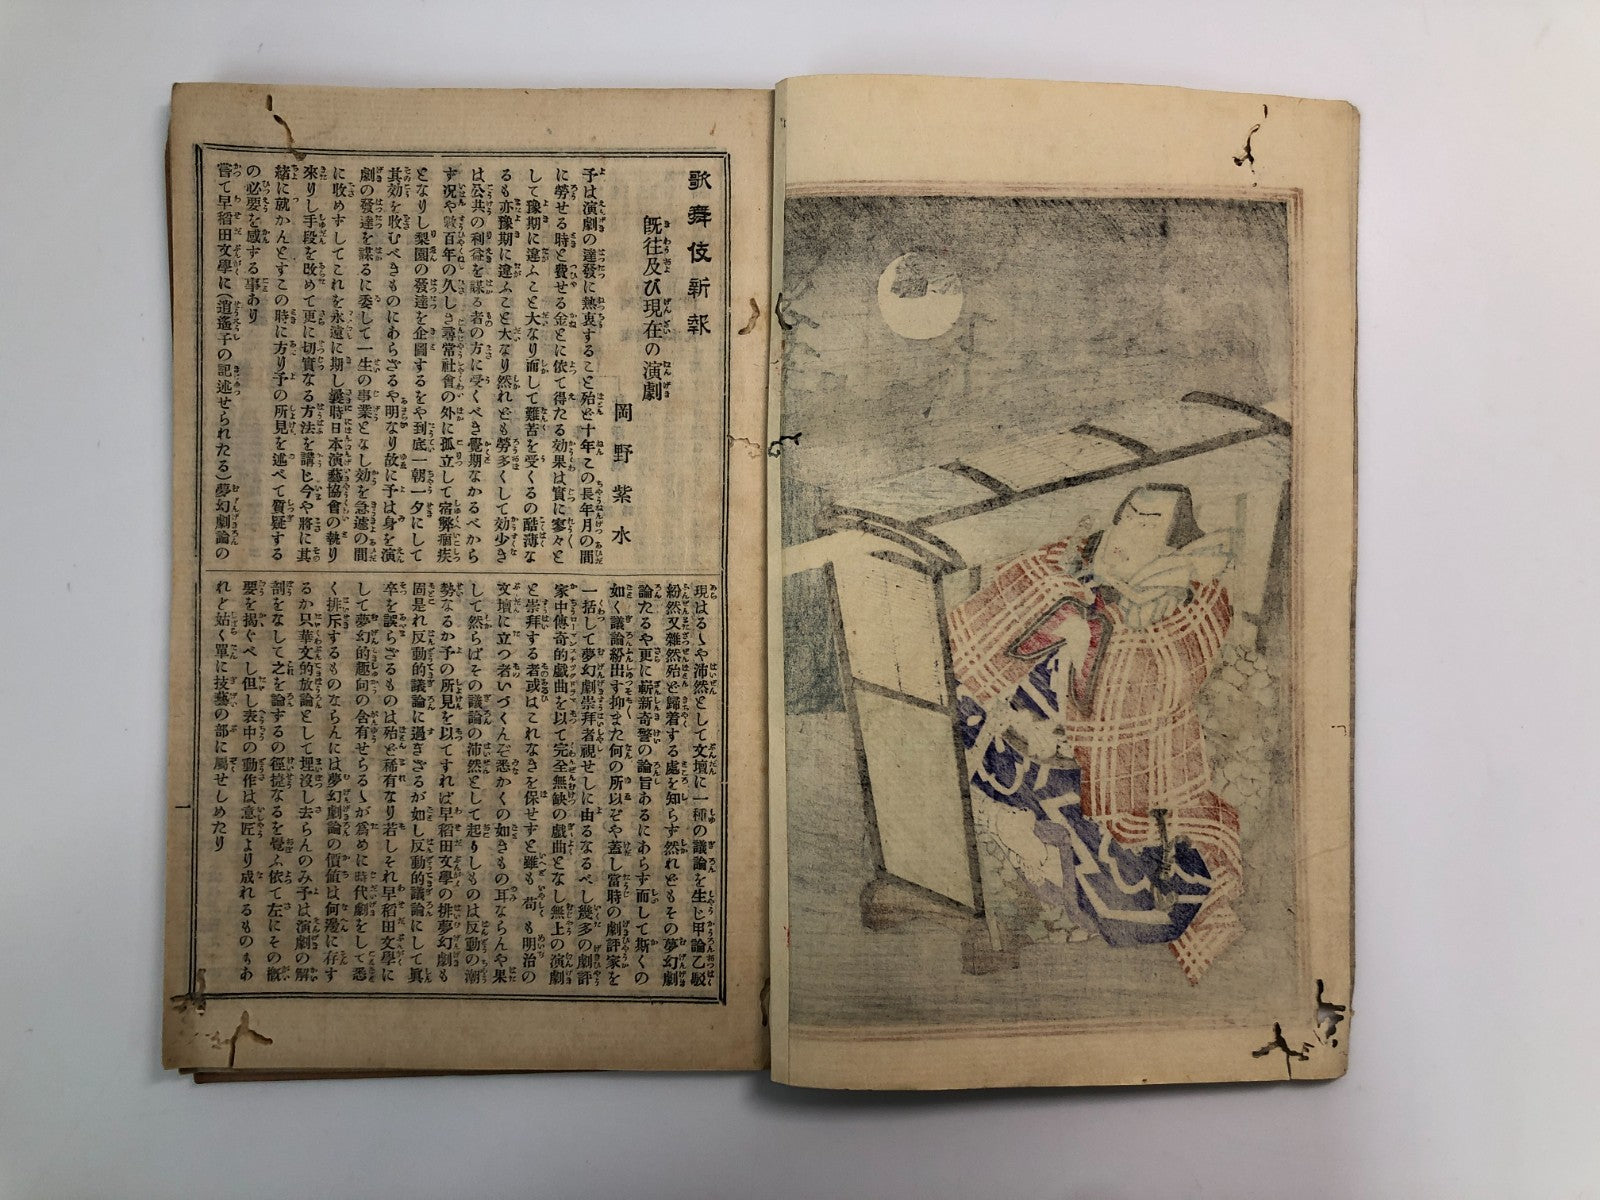 歌舞伎新報
既往及び現在の演劇
岡野紫水
予は演劇の達發に熱衷すること殆ど十年この長年月の間
に勞せる時と費せる金とに依て得たる効果は實に寥々と
して豫期に違ふこと大なり而して難苦を受くるの酷薄な
るも亦豫期に違ふこと大なり然れども勞多くして効少き
は公共の利益を謀る者の方に受くべき覺期なかるべから
ず况や數百年の久しき尋常社會の外に孤立して宿弊痼疾
となりし梨園の發達を企圖するをや到底一朝一夕にして
其効を收むべきものにあらざるや明なり故に予は身を演
劇の發達を謀るに委して一生の事業となし効を急遽の間
に收めずしてこれを永遠に期し曩時日本演藝協會の執り
來りし手段を改めて更に切實なる方法を講じ今や將に其
緒に就かんとすこの時に方り予の所見を述べて質疑する
の必要を感ずる事あり
嘗て早稻田文學に(逍遙子の記述せられたる)夢幻劇論の
現はるゝや沛然として文壇に一種の議論を生じ甲論乙駁
紛然又雜然殆ど歸着する處を知らず然れどもその夢幻劇
論たるや更に嶄新奇警の論旨あるにあらず而して斯くの
如く議論紛出す抑また何の所以ぞや蓋し當時の劇評家を
一括して夢幻劇崇拜者視せしに由るなるべし幾多の劇評
家中傳奇的戯曲を以て完全無缺の戯曲となし無上の演劇
と崇拜する者或はこれなきを保せずと雖も苟も明治の
文壇に立つ者いづくんぞ悉かくの如きもの耳ならんや果
して然らばその議論の沛然として起りしものは反動の潮
勢なるか予の所見を以てすれば早稻田文學の排夢幻劇も
固是れ反動的議論に過ぎざるが如し反動的議論にして眞
卒を誤らざるものは殆ど稀有なり若しそれ早稻田文學に
して夢幻的趣向の含有せらるゝが爲めに時代劇をして悉
く排斥するものならんには夢幻劇論の價値は何邊に存す
るか只華文的放論として埋沒し去らんのみ予は演劇の解
剖をなして之を論ずるの徑捷なるを覺ふ依て左にその概
要を揭ぐべし但し表中の動作は意匠より成れるものもあ
れど姑く單に技藝の部に屬せしめたり
一